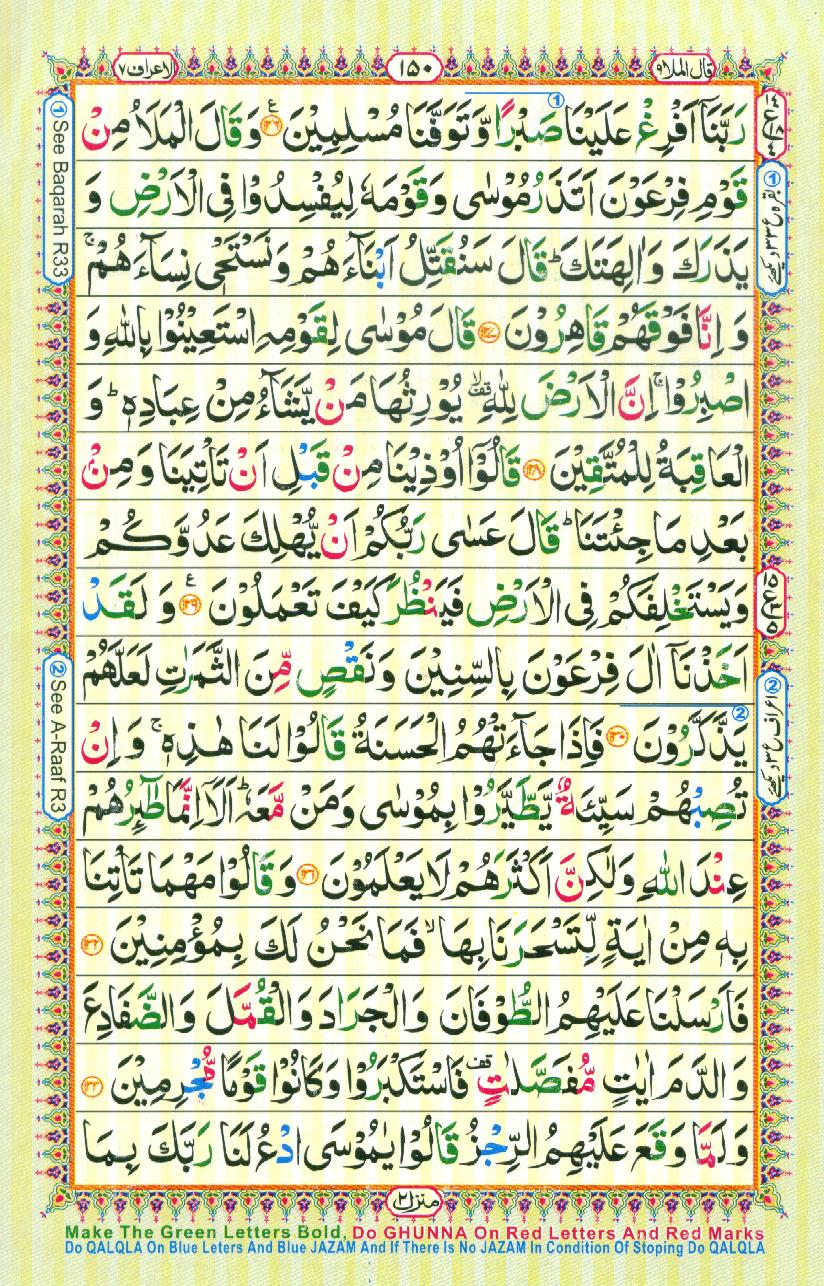 قال الملا ٩
١٥٠
الاعراف ٧
رَبَّنَاۤ اَفْرِغْ عَلَیْنَا صَبْرًا وَّتَوَفَّنَا مُسْلِمِیْنَ ﴿۱۲۶﴾ ع وَقَالَ الْمَلَاُ مِنْ
قَوْمِ فِرْعَوْنَ اَتَذَرُ مُوْسٰی وَقَوْمَهٗ لِیُفْسِدُوْا فِی الْاَرْضِ وَ
یَذَرَكَ وَاٰلِهَتَكَ ؕ قَالَ سَنُقَتِّلُ اَبْنَآءَهُمْ وَنَسْتَحْیٖ نِسَآءَهُمْ ۚ
وَ اِنَّا فَوْقَهُمْ قَاهِرُوْنَ ﴿۱۲۷﴾ قَالَ مُوْسٰی لِقَوْمِهِ اسْتَعِیْنُوْا بِاللّٰهِ وَ
اصْبِرُوْا ۚ اِنَّ الْاَرْضَ لِلّٰهِ ۙ۫ یُوْرِثُهَا مَنْ یَّشَآءُ مِنْ عِبَادِهٖ ؕ وَ
الْعَاقِبَةُ لِلْمُتَّقِیْنَ ﴿۱۲۸﴾ قَالُوْۤا اُوْذِیْنَا مِنْ قَبْلِ اَنْ تَاْتِیَنَا وَ مِنْ
بَعْدِ مَا جِئْتَنَا ؕ قَالَ عَسٰی رَبُّكُمْ اَنْ یُّهْلِكَ عَدُوَّكُمْ
وَیَسْتَخْلِفَكُمْ فِی الْاَرْضِ فَیَنْظُرَ كَیْفَ تَعْمَلُوْنَ ﴿۱۲۹﴾ ع وَ لَقَدْ
اَخَذْنَاۤ اٰلَ فِرْعَوْنَ بِالسِّنِیْنَ وَنَقْصٍ مِّنَ الثَّمَرٰتِ لَعَلَّهُمْ
یَذَّكَّرُوْنَ ﴿۱۳۰﴾ فَاِذَا جَآءَتْهُمُ الْحَسَنَةُ قَالُوْا لَنَا هٰذِهٖ ۚ وَ اِنْ
تُصِبْهُمْ سَیِّئَةٌ یَّطَّیَّرُوْا بِمُوْسٰی وَمَنْ مَّعَهٗ ؕ اَلَاۤ اِنَّمَا طٰٓئِرُهُمْ
عِنْدَ اللّٰهِ وَلٰكِنَّ اَكْثَرَهُمْ لَا یَعْلَمُوْنَ ﴿۱۳۱﴾ وَ قَالُوْا مَهْمَا تَاْتِنَا
بِهٖ مِنْ اٰیَةٍ لِّتَسْحَرَنَا بِهَا ۙ فَمَا نَحْنُ لَكَ بِمُؤْمِنِیْنَ ﴿۱۳۲﴾
فَاَرْسَلْنَا عَلَیْهِمُ الطُّوْفَانَ وَالْجَرَادَ وَالْقُمَّلَ وَالضَّفَادِعَ
وَ الدَّمَ اٰیٰتٍ مُّفَصَّلٰتٍ قف فَاسْتَكْبَرُوْا وَ كَانُوْا قَوْمًا مُّجْرِمِیْنَ ﴿۱۳۳﴾
وَ لَمَّا وَقَعَ عَلَیْهِمُ الرِّجْزُ قَالُوْا یٰمُوْسَی ادْعُ لَنَا رَبَّكَ بِمَا
منزل ٢
1 See Baqarah R33
2 See A-Raaf R3
1 بقرہ ع ٣٣ دیکھئے
2 اعراف ع ٣ دیکھئے
Make The Green Letters Bold, Do GHUNNA On Red Letters And Red Marks
Do QALQLA On Blue Leters And Blue JAZAM And If There Is No JAZAM In Condition Of Stoping Do QALQLA